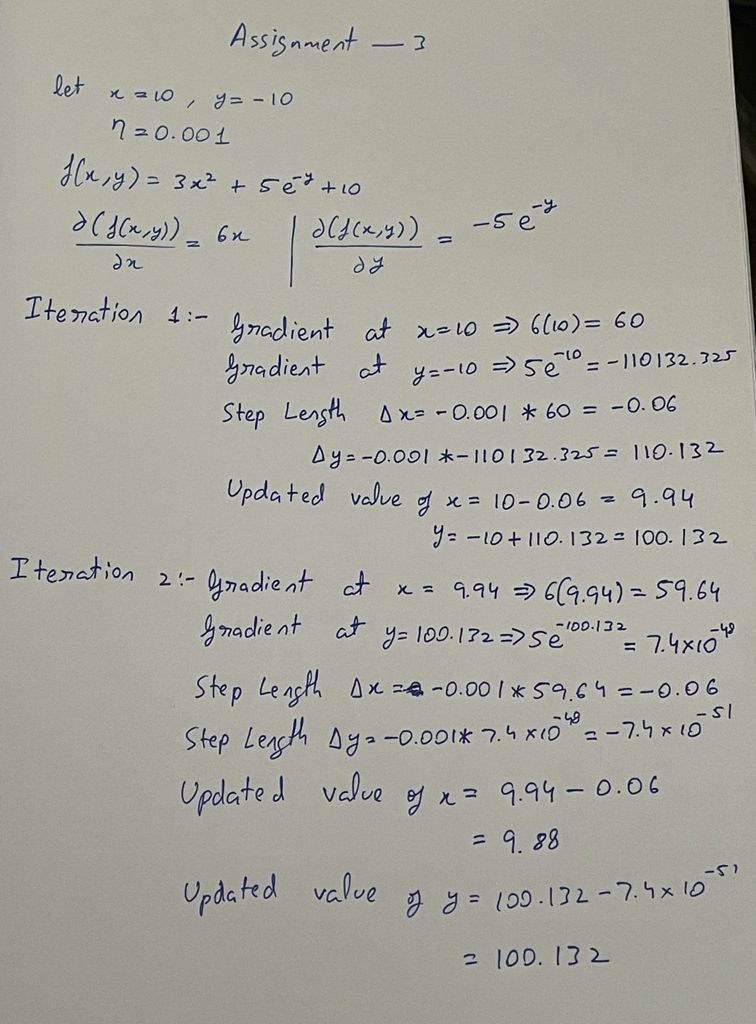 Assignment — 3
let x = 10 , y = -10
η = 0.001
f(x,y) = 3x² + 5e^-y + 10
∂(f(x,y))/∂x = 6x | ∂(f(x,y))/∂y = -5e^-y
Iteration 1:- Gradient at x=10 ⇒ 6(10) = 60
Gradient at y=-10 ⇒ 5e^-10 = -110132.325
Step Length Δx = -0.001 * 60 = -0.06
Δy = -0.001 * -110132.325 = 110.132
Updated value of x = 10 - 0.06 = 9.94
y = -10 + 110.132 = 100.132
Iteration 2:- Gradient at x = 9.94 ⇒ 6(9.94) = 59.64
Gradient at y = 100.132 ⇒ 5e^-100.132 = 7.4×10^-48
Step Length Δx = -0.001 * 59.64 = -0.06
Step Length Δy = -0.001 * 7.4×10^-48 = -7.4×10^-51
Updated value of x = 9.94 - 0.06
= 9.88
Updated value of y = 100.132 - 7.4×10^-51
= 100.132